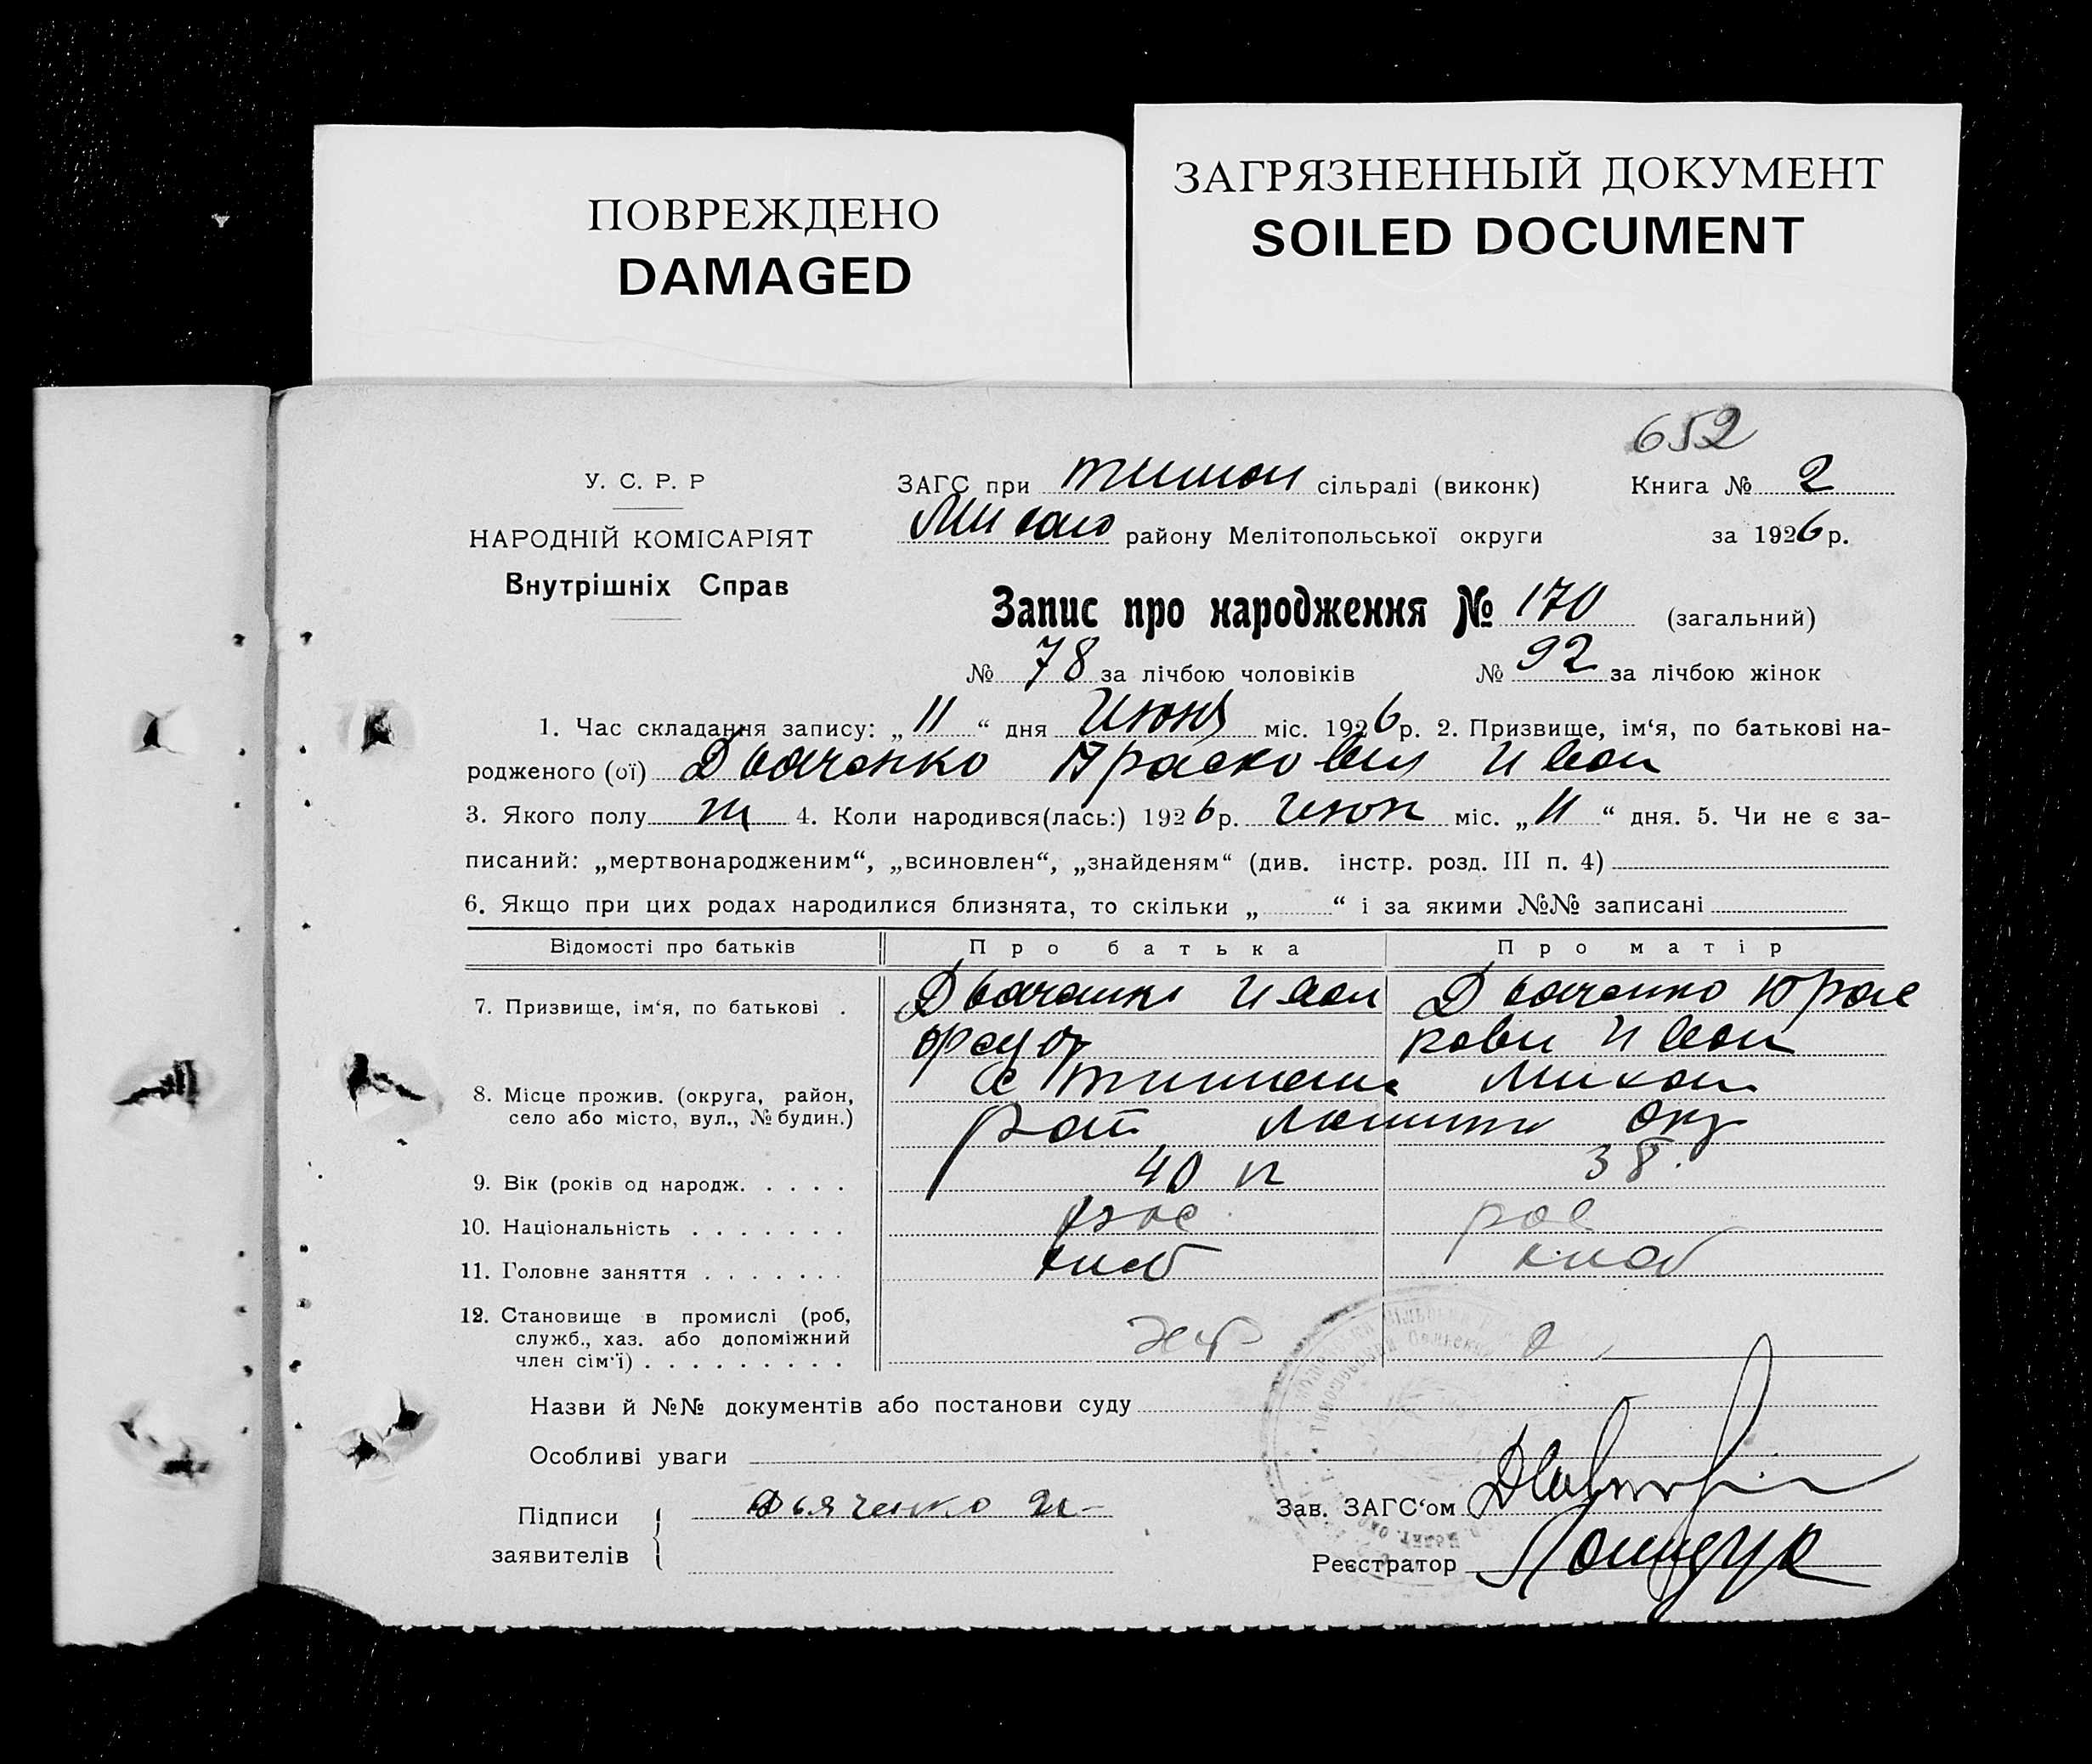 ПОВРЕЖДЕНО
DAMAGED
ЗАГРЯЗНЕННЫЙ ДОКУМЕНТ
SOILED DOCUMENT
652
У. С. Р. Р
НАРОДНІЙ КОМІСАРІЯТ
Внутрішніх Справ
ЗАГС при Тимош сільраді (виконк)
району Мелітопольської округи
Книга № 2
за 1926 р.
Запис про народження № 170 (загальний)
№ 78 за лічбою чоловіків № 92 за лічбою жінок
1. Час складання запису: „11“ дня Июня міс. 1926 р. 2. Призвище, ім‘я, по батькові на-
родженого (ої) Дьяченко Прасковия Иван
3. Якого полу 4. Коли народився(лась:) 1926 р. Июн міс. „11“ дня. 5. Чи не є за-
писаний: „мертвонародженим“, „всиновлен“, „знайденям“ (див. інстр. розд. III п. 4)
6. Якщо при цих родах народилися близнята, то скільки „ “ і за якими №№ записані
Відомості про батьків Про батька Про матір
7. Призвище, ім‘я, по батькові . Дьяченко Иван Дьяченко Прас
кови Иван
8. Місце прожив. (округа, район,
село або місто, вул., № будин.)
окр
9. Вік (років од народж. . . . . 40 38
10. Національність . . . . . . . рос рос
11. Головне заняття . . . . . . . хлеб хлеб
12. Становище в промислі (роб,
служб., хаз. або допоміжний
член сім‘ї) . . . . . . . . .
Назви й №№ документів або постанови суду
Особливі уваги
Підписи
заявителів
Дьяченко И
Зав. ЗАГС‘ом
Реєстратор